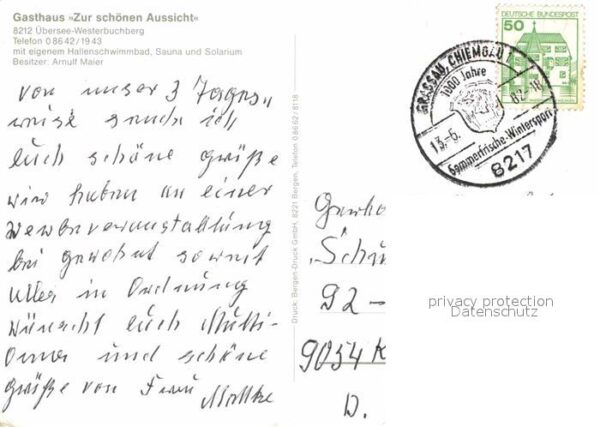 Gasthaus »Zur schönen Aussicht«
8212 Übersee-Westerbuchberg
Telefon 0 86 42 / 19 43
mit eigenem Hallenschwimmbad, Sauna und Solarium
Besitzer: Arnulf Maier
DEUTSCHE BUNDESPOST
50
GRASSAU, CHIEMGAU 1
1000 Jahre
13.-6. 82.-18
Sommerfrische-Wintersport
8217
von unser 3 Tages
reise sende ich
euch schöne grüße
wir haben an einer
Werbeveranstaltung
bei gewohnt soweit
alles in Ordnung
wünscht euch Mutti-
Oma und schöne
grüße von Frau
Druck: Bergen-Druck GmbH, 8221 Bergen, Telefon 0 86 62 / 8118
92-
9054 K
D.
privacy protection
Datenschutz